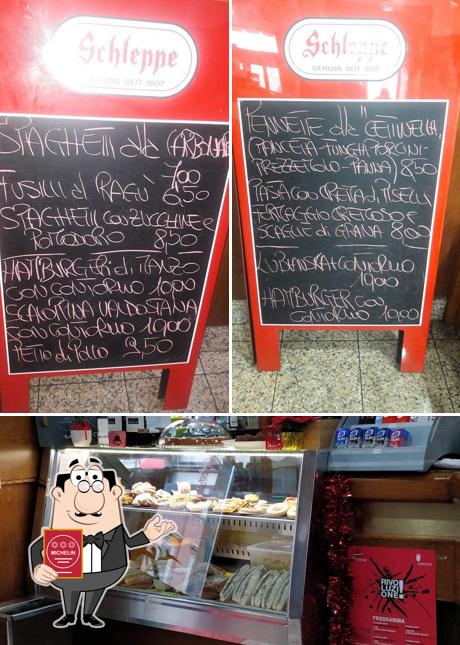 Schleppe
GENUSS SEIT 1607
SPAGHETTI alla CARBONARA
7,00
FUSILLI al RAGÙ 6,50
SPAGHETTI con ZUCCHINE e
POMODORO 8,50
HAMBURGER di MANZO
CON CONTORNO 10,00
SCALOPPINA VALDOSTANA
CON CONTORNO 10,00
PETTO di POLLO 9,50
Schleppe
GENUSS SEIT 1607
PENNETTE alla "CETTINELLA"
(PANCETTA-FUNGHI PORCINI-
PREZZEMOLO-PANNA) 8,50
PASTA CON CREMA di PISELLI
FORMAGGIO CREMOSO e
SCAGLIE di GRANA 8,00
LUBIANSKA + CONTORNO
10,00
HAMBURGER CON
CONTORNO 10,00
MICHELIN
RIVO
LUZI
ONE!
PROGRAMMA